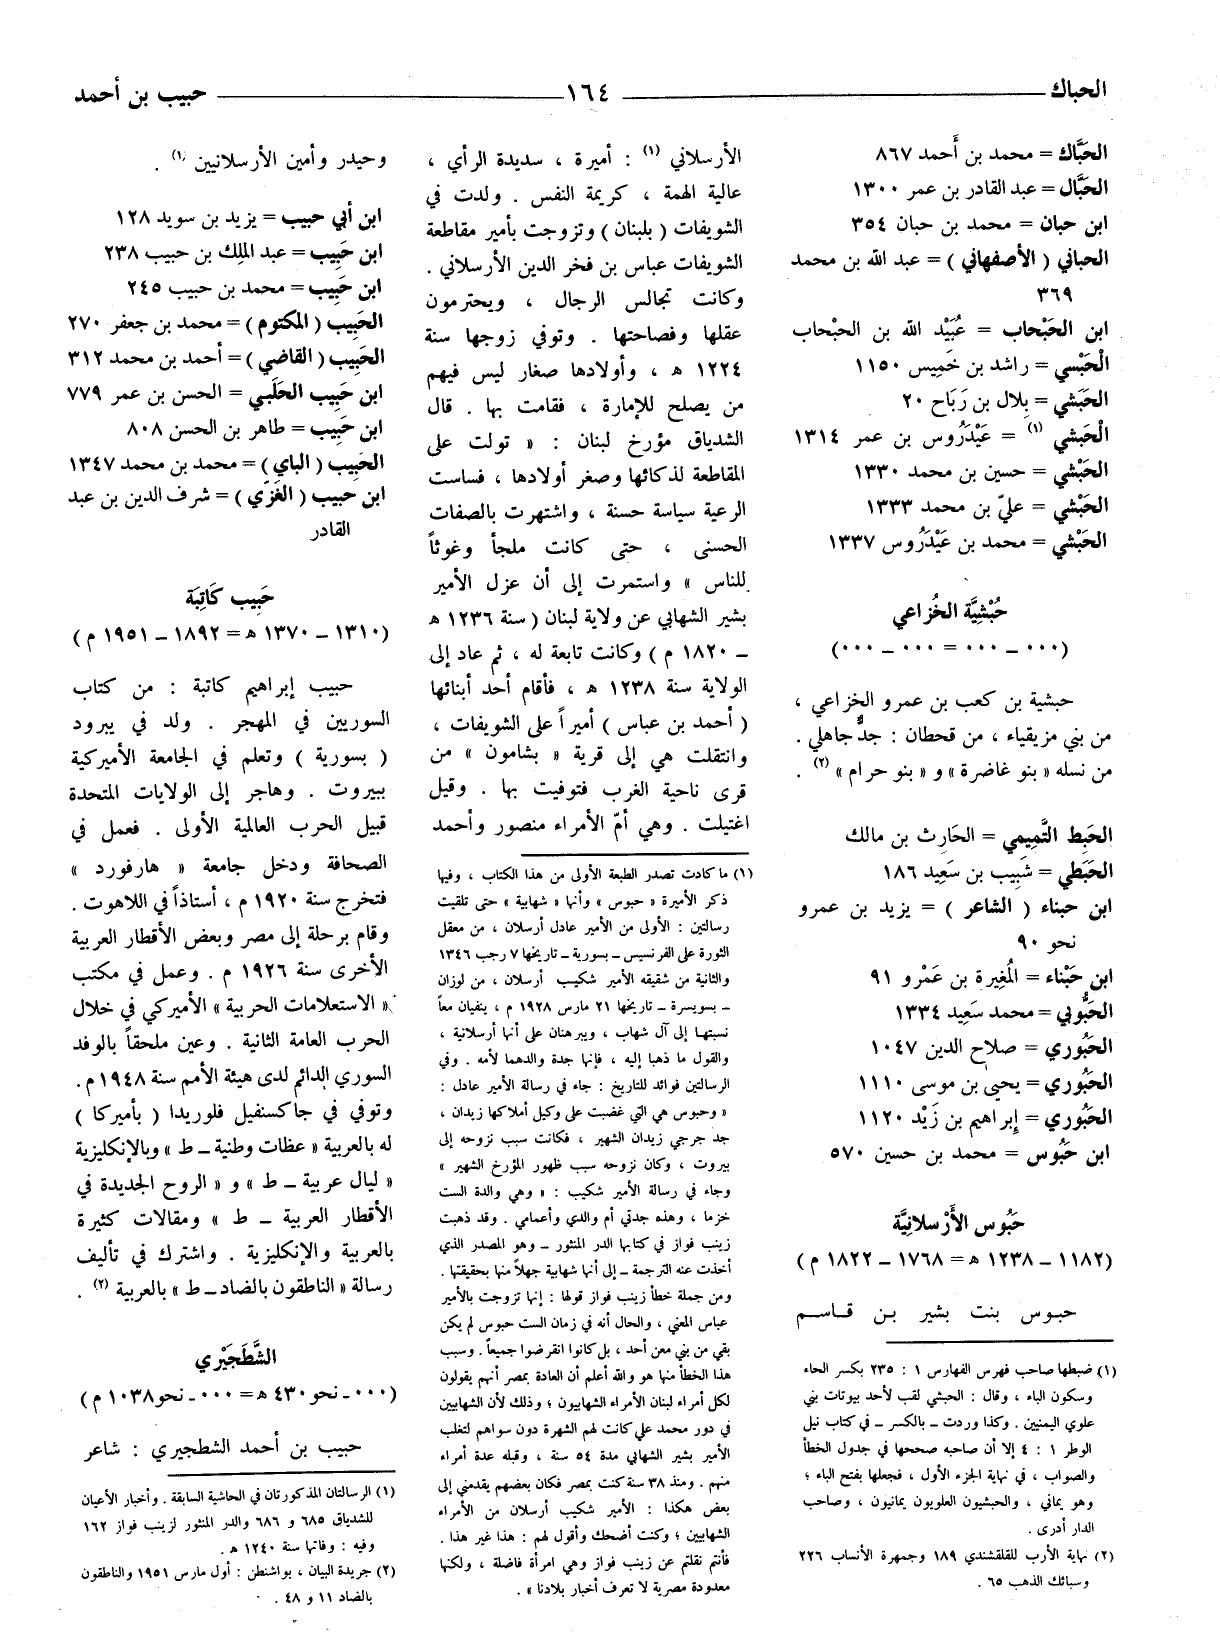 الحباك
١٦٤
حبيب بن أحمد
الحَبَّاك = محمد بن أَحمد ٨٦٧
الحَبَّال = عبد القادر بن عمر ١٣٠٠
ابن حبان = محمد بن حبان ٣٥٤
الحباني ( الأصفهاني ) = عبد الله بن محمد
٣٦٩
ابن الحَبْحاب = عُبَيْد الله بن الحبْحاب
الْحَبْسي = راشد بن خَمِيس ١١٥٠
الحَبَشي = بِلال بن رَبَاح ٢٠
الْحَبشي (١) = عَيْدَرُوس بن عمر ١٣١٤
الحَبْشي = حسين بن محمد ١٣٣٠
الحَبْشي = عليّ بن محمد ١٣٣٣
الحَبْشي = محمد بن عَيْدَرُوس ١٣٣٧
حُبْشِيَّة الخُزاعي
(٠٠٠ ــ ٠٠٠ = ٠٠٠ ــ ٠٠٠)
حبشية بن كعب بن عمرو الخزاعي ،
من بني مزيقياء ، من قحطان : جدٌّ جاهلي .
من نسله « بنو غاضرة » و « بنو حرام » (٢) .
الحَبِط التَّمِيمي = الحَارِث بن مالك
الحَبَطي = شَبِيب بن سَعِيد ١٨٦
ابن حبناء ( الشاعر ) = يزيد بن عمرو
نحو ٩٠
ابن حَبْناء = المُغِيرة بن عَمْرو ٩١
الحَبُّوبي = محمد سَعِيد ١٣٣٤
الحَبُوري = صلاح الدين ١٠٤٧
الحَبُوري = يحيى بن موسى ١١١٠
الحَبُوري = إبراهيم بن زَيْد ١١٢٠
ابن حَبُوس = محمد بن حسين ٥٧٠
حَبُوس الأَرْسلانِيَّة
(١١٨٢ ــ ١٢٣٨ ه = ١٧٦٨ ــ ١٨٢٢ م)
حبوس بنت بشير بن قاسم
(١) ضبطها صاحب فهرس الفهارس ١ : ٢٣٥ بكسر الحاء
وسكون الباء ، وقال : الحبشي لقب لأحد بيوتات بني
علوي اليمنيين . وكذا وردت ــ بالكسر ــ في كتاب نيل
الوطر ١ : ٤ إلا أن صاحبه صححها في جدول الخطأ
والصواب ، في نهاية الجزء الأول ، فجعلها بفتح الباء ؛
وهو يماني ، والحبشيون العلويون يمانيون ، وصاحب
الدار أدرى .
(٢) نهاية الأرب للقلقشندي ١٨٩ وجمهرة الأنساب ٢٢٦
وسبائك الذهب ٦٥ .
الأرسلاني (١) : أميرة ، سديدة الرأي ،
عالية الهمة ، كريمة النفس . ولدت في
الشويفات ( بلبنان ) وتزوجت بأمير مقاطعة
الشويفات عباس بن فخر الدين الأرسلاني .
وكانت تجالس الرجال ، ويحترمون
عقلها وفصاحتها . وتوفي زوجها سنة
١٢٢٤ ه ، وأولادها صغار ليس فيهم
من يصلح للإمارة ، فقامت بها . قال
الشدياق مؤرخ لبنان : « تولت على
المقاطعة لذكائها وصغر أولادها ، فساست
الرعية سياسة حسنة ، واشتهرت بالصفات
الحسنى ، حتى كانت ملجأ وغوثاً
للناس » واستمرت إلى أن عزل الأمير
بشير الشهابي عن ولاية لبنان ( سنة ١٢٣٦ ه
ــ ١٨٢٠ م ) وكانت تابعة له ، ثم عاد إلى
الولاية سنة ١٢٣٨ ه ، فأقام أحد أبنائها
( أحمد بن عباس ) أميراً على الشويفات ،
وانتقلت هي إلى قرية « بشامون » من
قرى ناحية الغرب فتوفيت بها . وقيل
اغتيلت . وهي أمّ الأمراء منصور وأحمد
(١) ما كادت تصدر الطبعة الأولى من هذا الكتاب ، وفيها
ذكر الأميرة « حبوس » وأنها « شهابية » حتى تلقيت
رسالتين : الأولى من الأمير عادل أرسلان ، من معقل
الثورة على الفرنسيس ــ بسورية ــ تاريخها ٧ رجب ١٣٤٦
والثانية من شقيقه الأمير شكيب أرسلان ، من لوزان
ــ بسويسرة ــ تاريخها ٢١ مارس ١٩٢٨ م ، ينفيان معاً
نسبتها إلى آل شهاب ، ويبرهنان على أنها أرسلانية ،
والقول ما ذهبا إليه ، فإنها جدة والدهما لأمه . وفي
الرسالتين فوائد للتاريخ : جاء في رسالة الأمير عادل :
« وحبوس هي التي غضبت على وكيل أملاكها زيدان ،
جد جرجي زيدان الشهير ، فكانت سبب نزوحه إلى
بيروت ، وكان نزوحه سبب ظهور المؤرخ الشهير »
وجاء في رسالة الأمير شكيب : « وهي والدة الست
خزما ، وهذه جدتي أم والدي وأعمامي . وقد ذهبت
زينب فواز في كتابها الدر المنثور ــ وهو المصدر الذي
أخذت عنه الترجمة ــ إلى أنها شهابية جهلاً منها بحقيقتها .
ومن جملة خطأ زينب فواز قولها : إنها تزوجت بالأمير
عباس المعني ، والحال أنه في زمان الست حبوس لم يكن
بقي من بني معن أحد ، بل كانوا انقرضوا جميعاً . وسبب
هذا الخطأ منها هو والله أعلم أن العادة بمصر أنهم يقولون
لكل أمراء لبنان الأمراء الشهابيون ؛ وذلك لأن الشهابيين
في دور محمد علي كانت لهم الشهرة دون سواهم لتغلب
الأمير بشير الشهابي مدة ٥٤ سنة ، وقبله عدة أمراء
منهم . ومنذ ٣٨ سنة كنت بمصر فكان بعضهم يقدمني إلى
بعض هكذا : الأمير شكيب أرسلان من الأمراء
الشهابيين ؛ وكنت أضحك وأقول لهم : هذا غير هذا .
فأنتم نقلتم عن زينب فواز وهي امرأة فاضلة ، ولكنها
معدودة مصرية لا تعرف أخبار بلادنا » .
وحيدر وأمين الأرسلانيين (١) .
ابن أبي حبيب = يزيد بن سويد ١٢٨
ابن حَبِيب = عبد المَلِك بن حبيب ٢٣٨
ابن حَبِيب = محمد بن حبيب ٢٤٥
الحَبِيب ( المكتوم ) = محمد بن جعفر ٢٧٠
الحَبِيب ( القاضي ) = أحمد بن محمد ٣١٢
ابن حَبِيب الحَلَبي = الحسن بن عمر ٧٧٩
ابن حَبِيب = طاهر بن الحسن ٨٠٨
الحَبِيب ( الباي ) = محمد بن محمد ١٣٤٧
ابن حبيب ( الغَزّي ) = شرف الدين بن عبد
القادر
حَبِيب كَاتِبَة
(١٣١٠ ــ ١٣٧٠ ه = ١٨٩٢ ــ ١٩٥١ م)
حبيب إبراهيم كاتبة : من كتاب
السوريين في المهجر . ولد في يبرود
( بسورية ) وتعلم في الجامعة الأميركية
ببيروت . وهاجر إلى الولايات المتحدة
قبيل الحرب العالمية الأولى . فعمل في
الصحافة ودخل جامعة « هارفورد »
فتخرج سنة ١٩٢٠ م ، أستاذاً في اللاهوت .
وقام برحلة إلى مصر وبعض الأقطار العربية
الأخرى سنة ١٩٢٦ م . وعمل في مكتب
« الاستعلامات الحربية » الأميركي في خلال
الحرب العامة الثانية . وعين ملحقاً بالوفد
السوري الدائم لدى هيئة الأمم سنة ١٩٤٨ م .
وتوفي في جاكسنفيل فلوريدا ( بأميركا )
له بالعربية « عظات وطنية ــ ط » وبالإنكليزية
« ليال عربية ــ ط » و « الروح الجديدة في
الأقطار العربية ــ ط » ومقالات كثيرة
بالعربية والإنكليزية . واشترك في تأليف
رسالة « الناطقون بالضاد ــ ط » بالعربية (٢) .
الشَّطَجَيْري
(٠٠٠ ــ نحو ٤٣٠ ه = ٠٠٠ ــ نحو ١٠٣٨ م)
حبيب بن أحمد الشطجيري : شاعر
(١) الرسالتان المذكورتان في الحاشية السابقة . وأخبار الأعيان
للشدياق ٦٨٥ و ٦٨٦ والدر المنثور لزينب فواز ١٦٢
وفيه : وفاتها سنة ١٢٤٠ ه .
(٢) جريدة البيان ، بواشنطن : أول مارس ١٩٥١ والناطقون
بالضاد ١١ و ٤٨ .